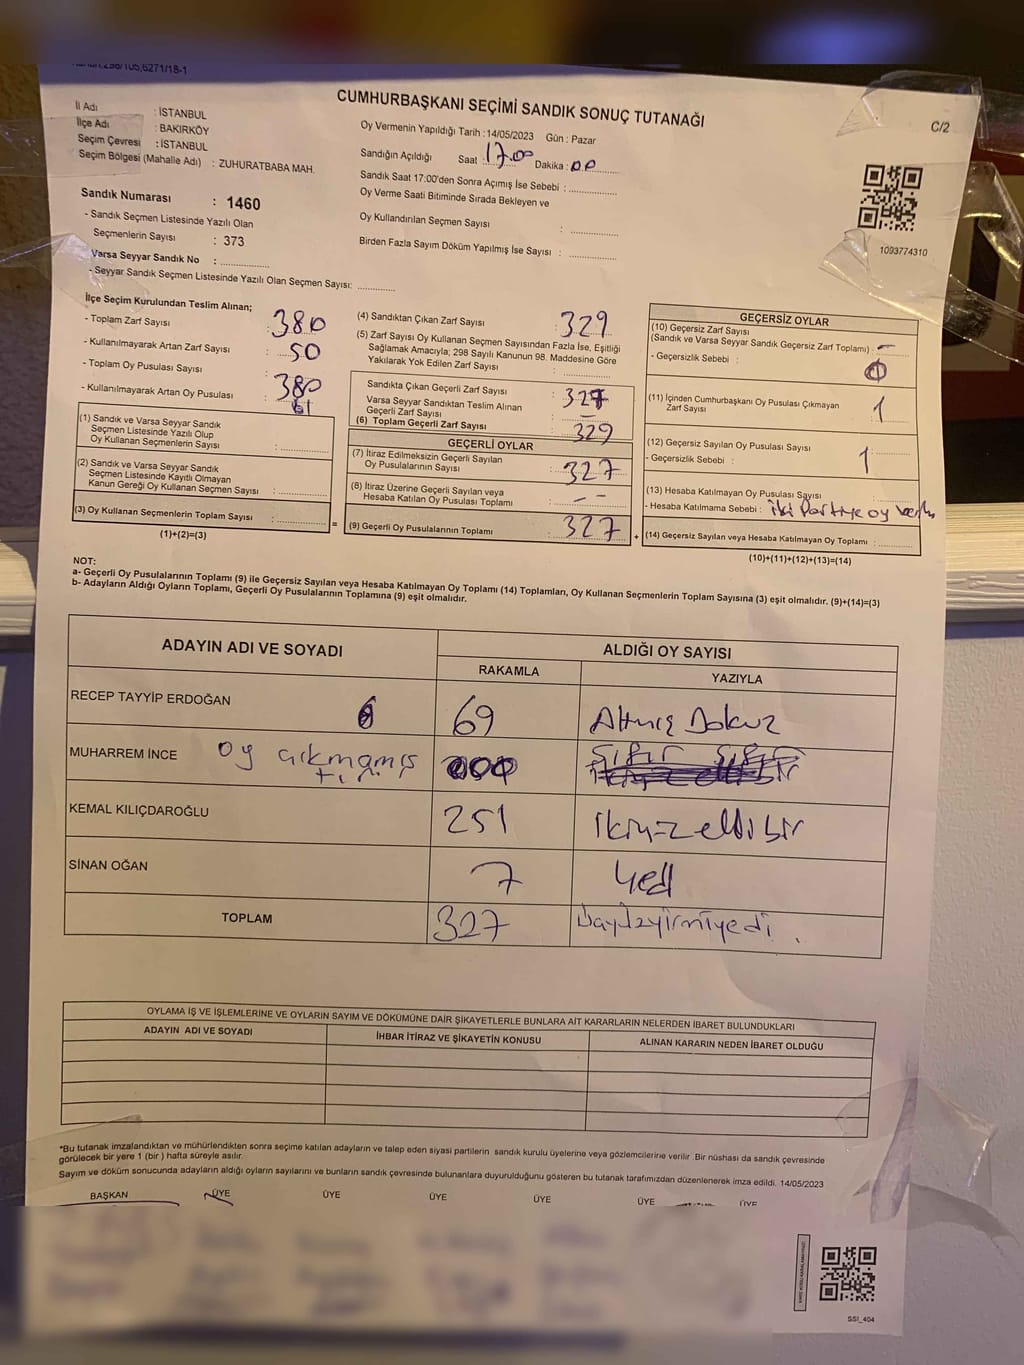 CUMHURBAŞKANI SEÇİMİ SANDIK SONUÇ TUTANAĞI
C/2
İl Adı : İSTANBUL
İlçe Adı : BAKIRKÖY
Seçim Çevresi : İSTANBUL
Seçim Bölgesi (Mahalle Adı) : ZUHURATBABA MAH.
Sandık Numarası : 1460
- Sandık Seçmen Listesinde Yazılı Olan
Seçmenlerin Sayısı : 373
Varsa Seyyar Sandık No :
- Seyyar Sandık Seçmen Listesinde Yazılı Olan Seçmen Sayısı:
Oy Vermenin Yapıldığı Tarih : 14/05/2023 Gün : Pazar
Sandığın Açıldığı Saat : 17.00 Dakika : 00
Sandık Saat 17:00'den Sonra Açımış İse Sebebi :
Oy Verme Saati Bitiminde Sırada Bekleyen ve
Oy Kullandırılan Seçmen Sayısı :
Birden Fazla Sayım Döküm Yapılmış İse Sayısı :
1093774310
İlçe Seçim Kurulundan Teslim Alınan;
- Toplam Zarf Sayısı : 380
- Kullanılmayarak Artan Zarf Sayısı : 50
- Toplam Oy Pusulası Sayısı : 380
- Kullanılmayarak Artan Oy Pusulası 61
(1) Sandık ve Varsa Seyyar Sandık
Seçmen Listesinde Yazılı Olup
Oy Kullanan Seçmenlerin Sayısı :
(2) Sandık ve Varsa Seyyar Sandık
Seçmen Listesinde Kayıtlı Olmayan
Kanun Gereği Oy Kullanan Seçmen Sayısı :
(3) Oy Kullanan Seçmenlerin Toplam Sayısı :
(1)+(2)=(3)
=
(4) Sandıktan Çıkan Zarf Sayısı : 329
(5) Zarf Sayısı Oy Kullanan Seçmen Sayısından Fazla İse, Eşitliği
Sağlamak Amacıyla; 298 Sayılı Kanunun 98. Maddesine Göre
Yakılarak Yok Edilen Zarf Sayısı :
Sandıkta Çıkan Geçerli Zarf Sayısı : 327
Varsa Seyyar Sandıktan Teslim Alınan
Geçerli Zarf Sayısı : –
(6) Toplam Geçerli Zarf Sayısı : 329
GEÇERLİ OYLAR
(7) İtiraz Edilmeksizin Geçerli Sayılan
Oy Pusulalarının Sayısı : 327
(8) İtiraz Üzerine Geçerli Sayılan veya
Hesaba Katılan Oy Pusulası Toplamı : – –
(9) Geçerli Oy Pusulalarının Toplamı : 327
+
GEÇERSİZ OYLAR
(10) Geçersiz Zarf Sayısı
(Sandık ve Varsa Seyyar Sandık Geçersiz Zarf Toplamı) : –
- Geçersizlik Sebebi : 0
(11) İçinden Cumhurbaşkanı Oy Pusulası Çıkmayan
Zarf Sayısı : 1
(12) Geçersiz Sayılan Oy Pusulası Sayısı : 1
- Geçersizlik Sebebi :
(13) Hesaba Katılmayan Oy Pusulası Sayısı :
- Hesaba Katılmama Sebebi : iki Partiye oy
(14) Geçersiz Sayılan veya Hesaba Katılmayan Oy Toplamı :
(10)+(11)+(12)+(13)=(14)
NOT:
a- Geçerli Oy Pusulalarının Toplamı (9) ile Geçersiz Sayılan veya Hesaba Katılmayan Oy Toplamı (14) Toplamları, Oy Kullanan Seçmenlerin Toplam Sayısına (3) eşit olmalıdır. (9)+(14)=(3)
b- Adayların Aldığı Oyların Toplamı, Geçerli Oy Pusulalarının Toplamına (9) eşit olmalıdır.
ADAYIN ADI VE SOYADI ALDIĞI OY SAYISI
RAKAMLA YAZIYLA
RECEP TAYYİP ERDOĞAN 69 Altmış Dokuz
MUHARREM İNCE oy çıkmamış
tır 000 Sıfır Sıfır
KEMAL KILIÇDAROĞLU 251 ikiyüzellibir
SİNAN OĞAN 7 Yedi
TOPLAM 327 üçyüzyirmiyedi.
OYLAMA İŞ VE İŞLEMLERİNE VE OYLARIN SAYIM VE DÖKÜMÜNE DAİR ŞİKAYETLERLE BUNLARA AİT KARARLARIN NELERDEN İBARET BULUNDUKLARI
ADAYIN ADI VE SOYADI İHBAR İTİRAZ VE ŞİKAYETİN KONUSU ALINAN KARARIN NEDEN İBARET OLDUĞU
*Bu tutanak imzalandıktan ve mühürlendikten sonra seçime katılan adayların ve talep eden siyasi partilerin sandık kurulu üyelerine veya gözlemcilerine verilir .Bir nüshası da sandık çevresinde
görülecek bir yere 1 (bir ) hafta süreyle asılır.
Sayım ve döküm sonucunda adayların aldığı oyların sayılarını ve bunların sandık çevresinde bulunanlara duyurulduğunu gösteren bu tutanak tarafımızdan düzenlenerek imza edildi. 14/05/2023
BAŞKAN ÜYE ÜYE ÜYE ÜYE ÜYE ÜYE
SSI_404